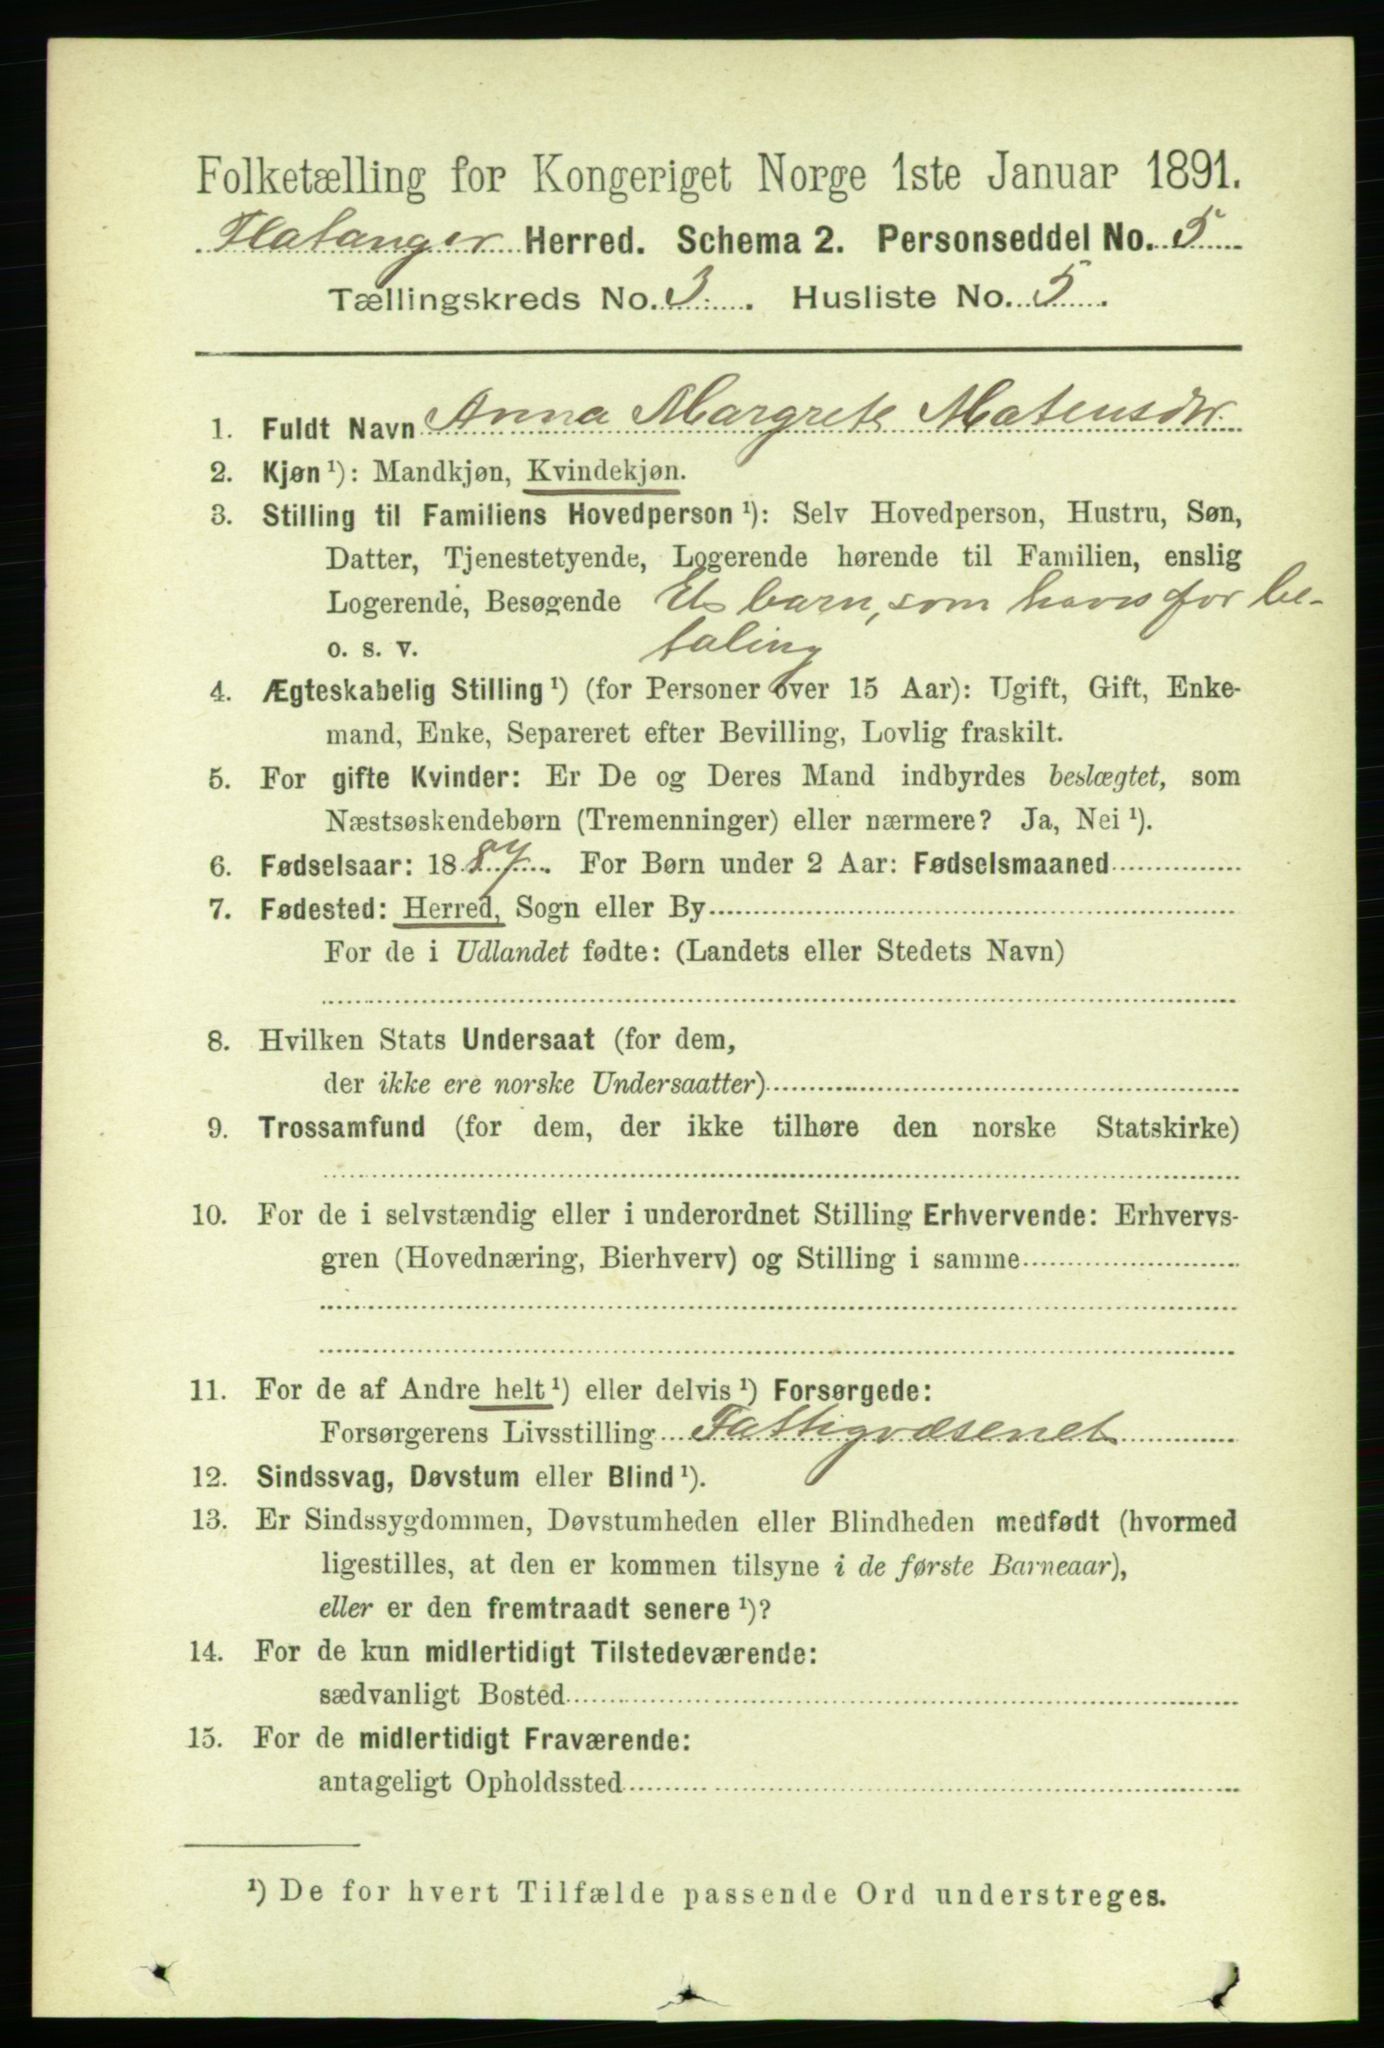 Folketælling for Kongeriget Norge 1ste Januar 1891.
Flatanger Herred. Schema 2. Personseddel No. 5
Tællingskreds No. 3. Husliste No. 5.
1. Fuldt Navn Anna Margrete Mateusdtr.
2. Kjøn ¹): Mandkjøn, Kvindekjøn.
3. Stilling til Familiens Hovedperson ¹): Selv Hovedperson, Hustru, Søn,
Datter, Tjenestetyende, Logerende hørende til Familien, enslig
Logerende, Besøgende Et barn, som haves for be-
o. s. v. taling
4. Ægteskabelig Stilling ¹) (for Personer over 15 Aar): Ugift, Gift, Enke-
mand, Enke, Separeret efter Bevilling, Lovlig fraskilt.
5. For gifte Kvinder: Er De og Deres Mand indbyrdes beslægtet, som
Næstsøskendebørn (Tremenninger) eller nærmere? Ja, Nei ¹).
6. Fødselsaar: 1887. For Børn under 2 Aar: Fødselsmaaned
7. Fødested: Herred, Sogn eller By
For de i Udlandet fødte: (Landets eller Stedets Navn)
8. Hvilken Stats Undersaat (for dem,
der ikke ere norske Undersaatter)
9. Trossamfund (for dem, der ikke tilhøre den norske Statskirke)
10. For de i selvstændig eller i underordnet Stilling Erhvervende: Erhvervs-
gren (Hovednæring, Bierhverv) og Stilling i samme
11. For de af Andre helt ¹) eller delvis ¹) Forsørgede:
Forsørgerens Livsstilling Fattigvæsenet
12. Sindssvag, Døvstum eller Blind ¹).
13. Er Sindssygdommen, Døvstumheden eller Blindheden medfødt (hvormed
ligestilles, at den er kommen tilsyne i de første Barneaar),
eller er den fremtraadt senere ¹)?
14. For de kun midlertidigt Tilstedeværende:
sædvanligt Bosted
15. For de midlertidigt Fraværende:
antageligt Opholdssted
¹) De for hvert Tilfælde passende Ord understreges.